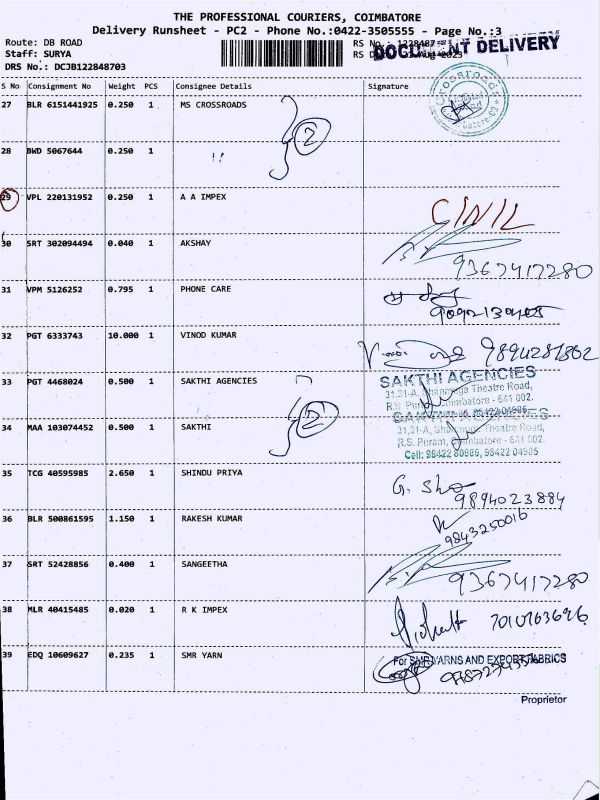 THE PROFESSIONAL COURIERS, COIMBATORE
Delivery Runsheet - PC2 - Phone No.:0422-3505555 - Page No.:3
Route: DB ROAD
Staff: SURYA
DRS No.: DCJB122848703
DELIVERY
S No Consignment No Weight PCS Consignee Details Signature
27 BLR 6151441925 0.250 1 MS CROSSROADS
2
28 BWD 5067644 0.250 1 "
29 VPL 220131952 0.250 1 A A IMPEX
30 SRT 302094494 0.040 1 AKSHAY
9367417280
31 VPM 5126252 0.795 1 PHONE CARE
32 PGT 6333743 10.000 1 VINOD KUMAR
33 PGT 4468024 0.500 1 SAKTHI AGENCIES
SAKTHI AGENCIES
Theatre Road,
34 MAA 103074452 0.500 1 SAKTHI
2
R.S. Puram, Coimbatore - 641 002.
Cell: 98422 80886, 98422 04985
35 TCG 40595985 2.650 1 SHINDU PRIYA
9894023884
36 BLR 500861595 1.150 1 RAKESH KUMAR
9843250016
37 SRT 52428856 0.400 1 SANGEETHA
9367417280
38 MLR 40415485 0.020 1 R K IMPEX
39 EDQ 10609627 0.235 1 SMR YARN
For SMR YARNS AND EXPORT FABRICS
Proprietor